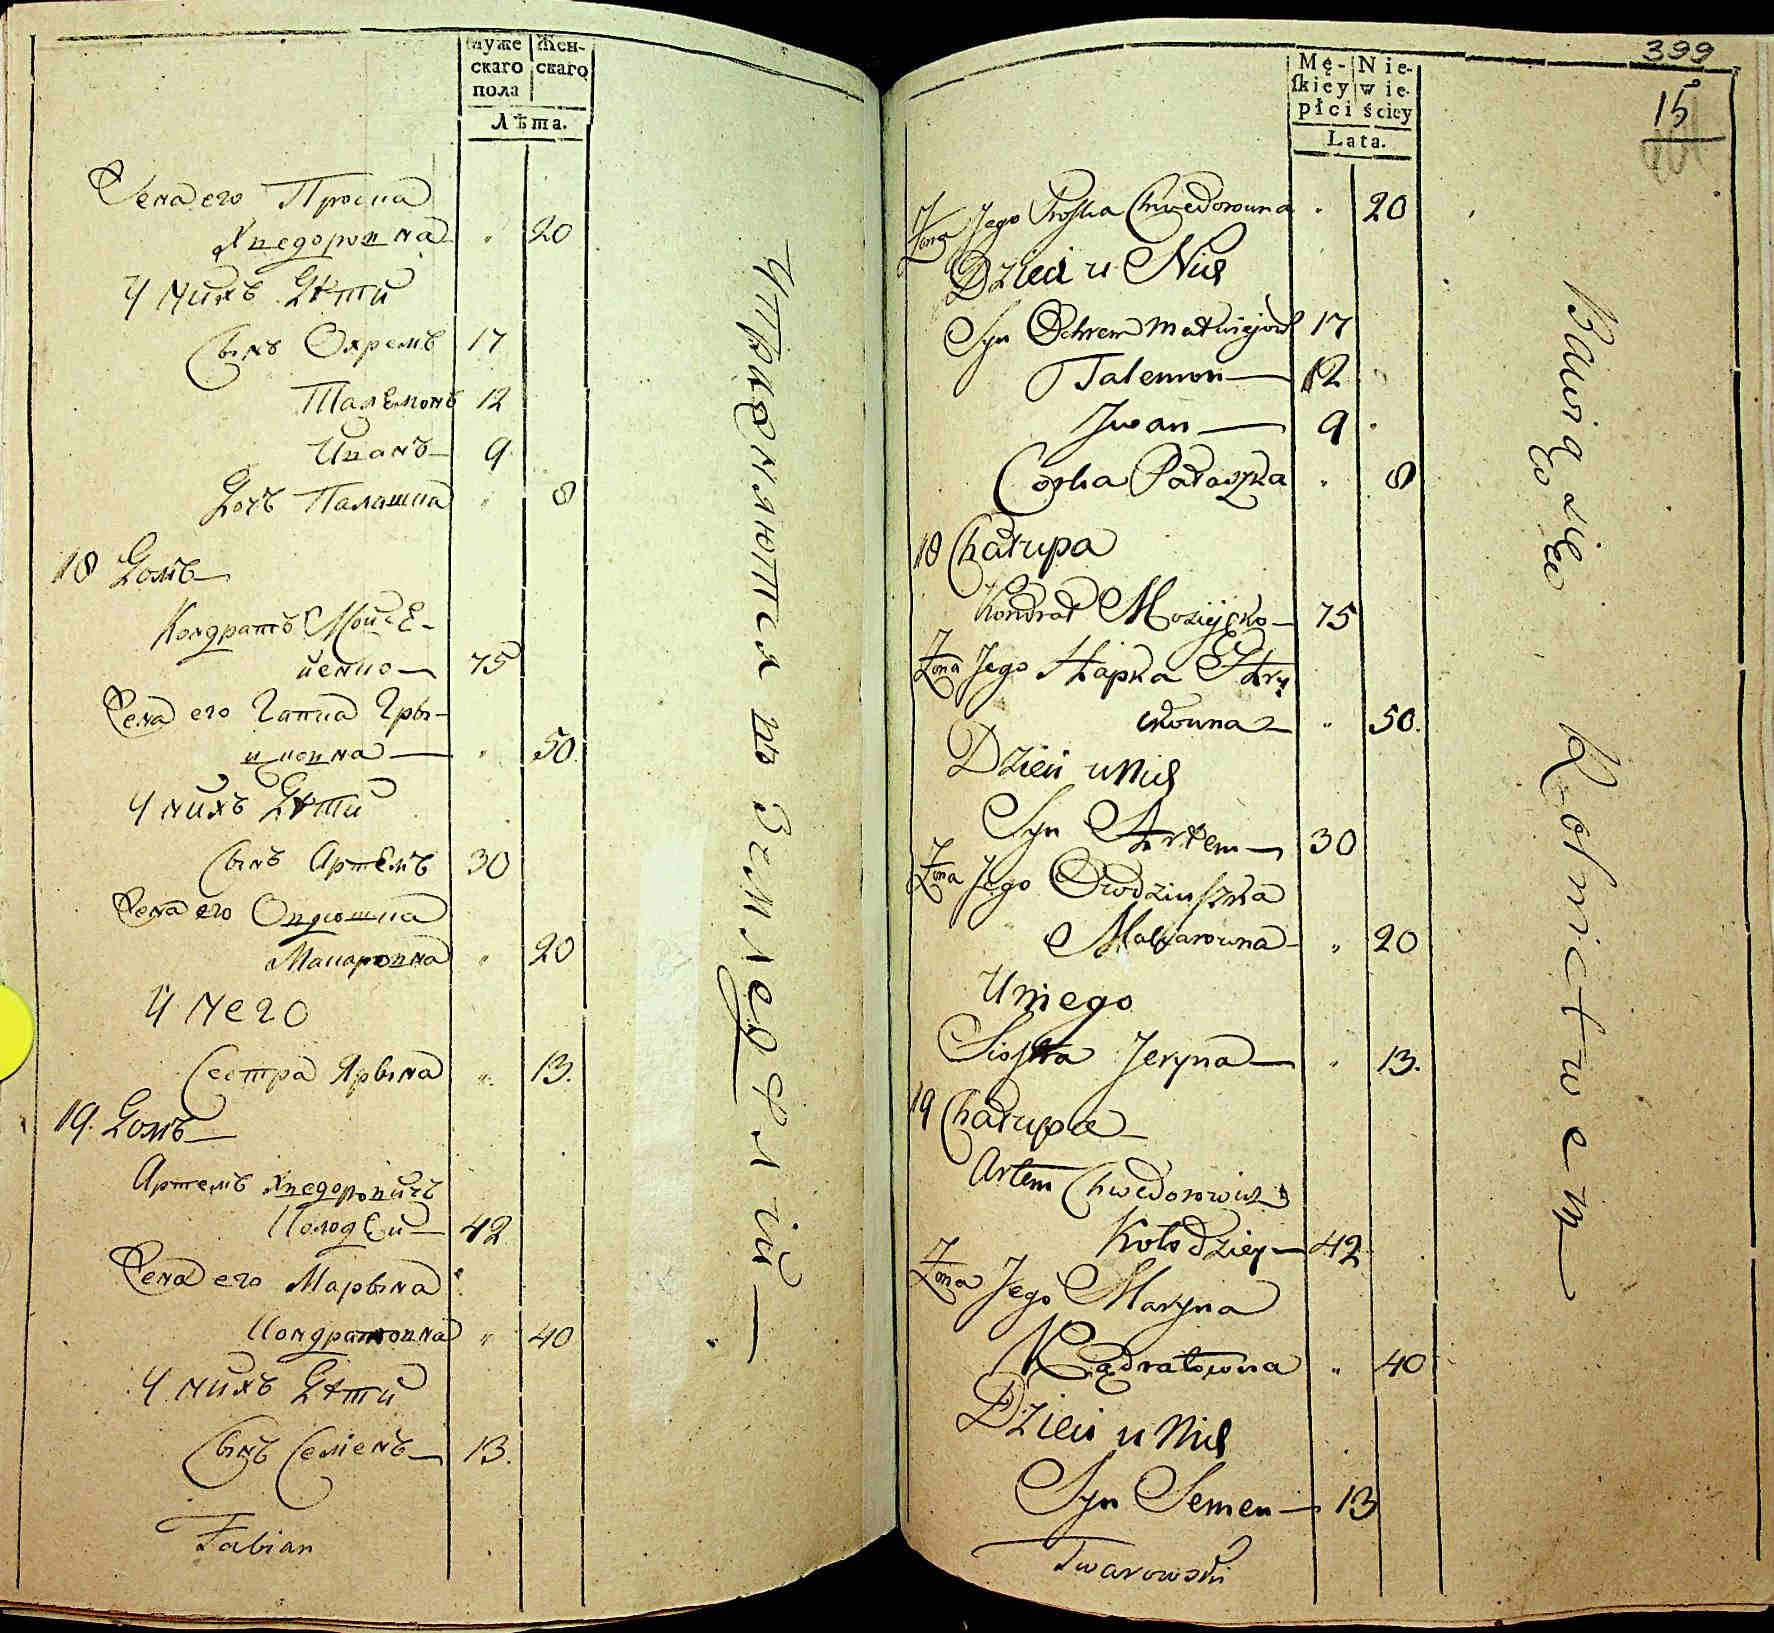 муже
скаго
пола
Жен-
скаго
Лѣта.
Жена его Проска
Хведоровна " 20
У нихъ дѣти
Сынъ Охремъ 17
Талемонъ 12
Иванъ 9
Дочь Палашка " 8
18 Домъ
Кондратъ Мойсе-
йенко 75
Жена его Гапка Гры-
цковна " 50.
У нихъ дѣти
Сынъ Артемъ 30
Жена его Овдюшка
Макаровна " 20
У него
Сестра Ярына " 13.
19. Домъ
Артемъ Хведоровичъ
Колодѣй 42
Жена его Марына
Кондратовна " 40
У нихъ дѣти
Сынъ Семенъ 13.
Fabian
Упражняются въ Земледѣлій
399
15
Mę-
skiey
płci
Nie-
wie-
ściey
Lata.
Żona Jego Proska Chwedorowna " 20
Dzieci u Nich
Syn Ochrem Matwiejow 17
Talemon 12
Jwan 9
Corka Pałaszka " 8
18 Chałupa
Kondrat Mosiyęko 75
Żona Jego Hapka Hry
ckowna " 50.
Dzieci u Nich
Syn Artem 30
Żona Jego Owdziuszka
Makarowna " 20
U niego
Siostra Jeryna " 13.
19 Chałupa
Artem Chwedorowicz
Kołodziey 42
Żona Jego Maryna
Kądratowna " 40
Dzieci u Nich
Syn Semen 13
Twarowski
Bawią się Rolnictwem